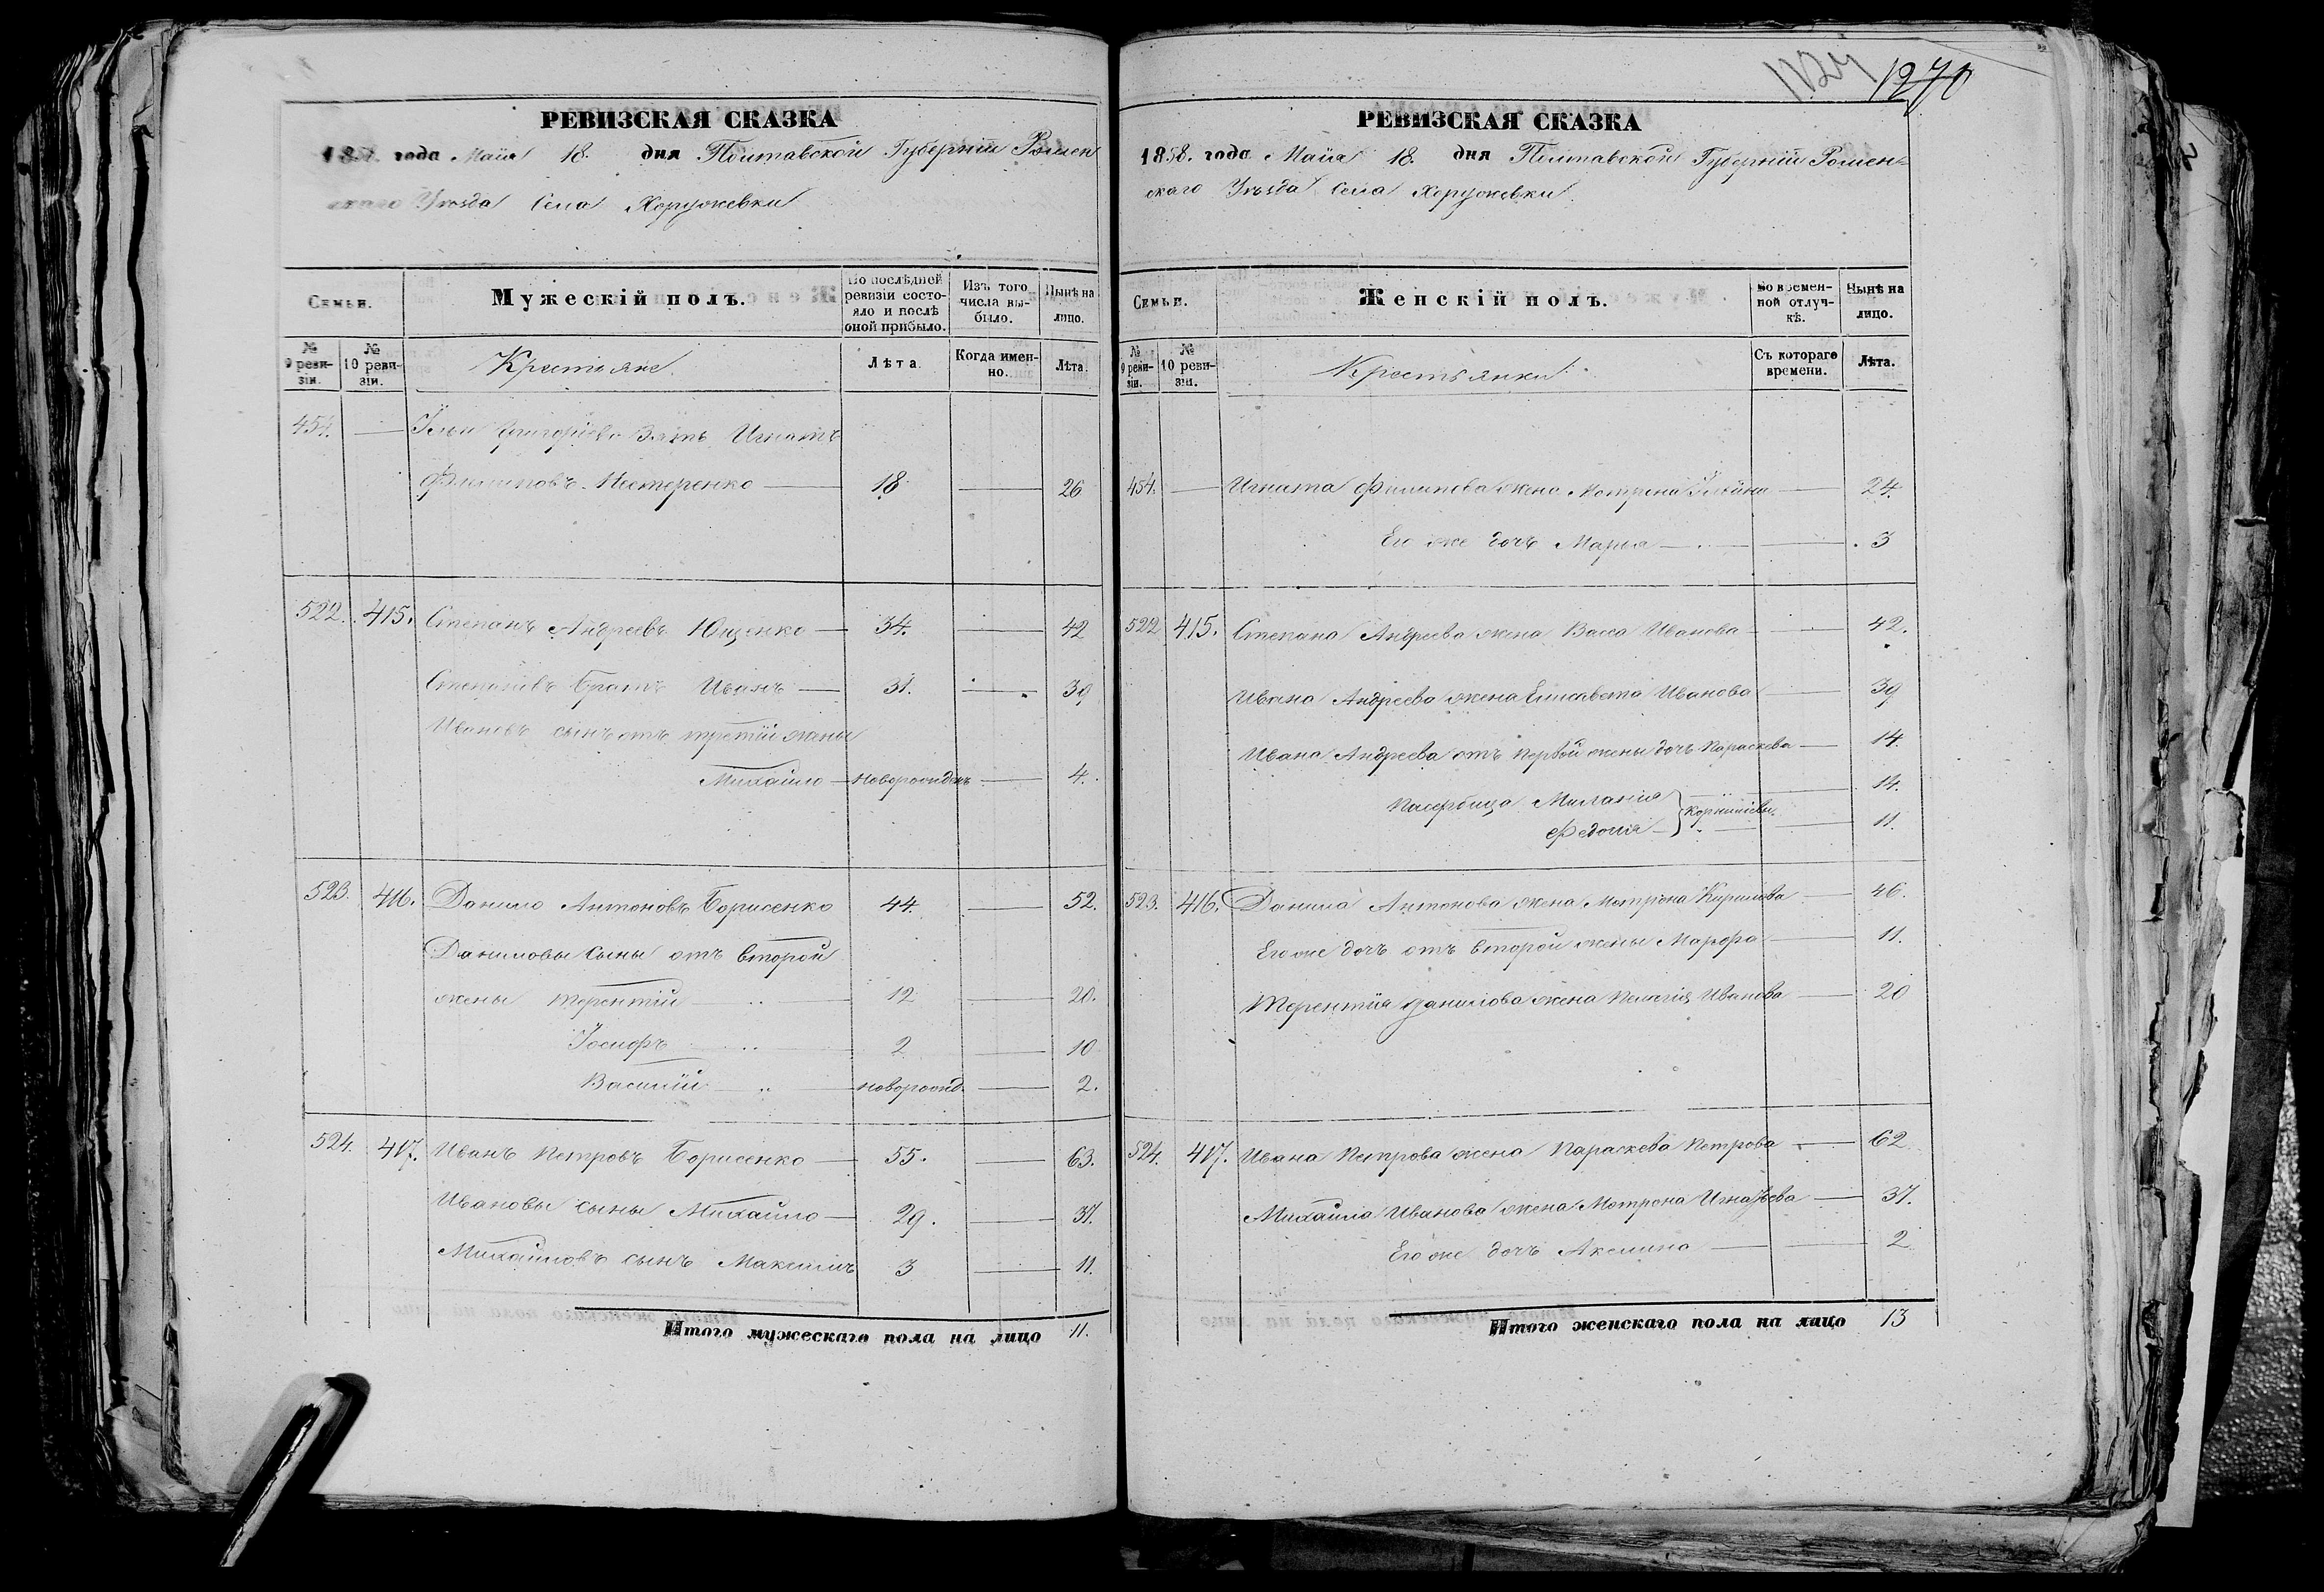 1124 1270
РЕВИЗСКАЯ СКАЗКА
1858. года Мая 18. дня Полтавской Губерніи Ромен
скаго Уѣзда Села Хоружевки
Семьи.
Мужескій полъ.
По послѣдней ревизіи состояло и послѣ оной прибыло.
Изъ того числа выбыло.
Нынѣ на лицо.
№ 9 ревизіи.
№ 10 ревизіи.
Крестьяне.
Лѣта.
Когда именно.
Лѣта.
454. — Ильи Григорьева Зять Игнатъ
Филиповъ Нестеренко — 18 — 26
522. 415. Степанъ Андреевъ Ющенко — 34. — 42
Степановъ братъ Иванъ — 31. — 39
Ивановъ сынъ отъ третій жены
Михайло — новорожденъ — 4.
523. 416. Данило Антоновъ Борисенко 44. — 52.
Даниловы сыны отъ второй
жены Терентій — 12 — 20.
Іосифъ — 2 — 10
Василій — новорожд. — 2.
524. 417. Иванъ Петровъ Борисенко — 55. — 63.
Ивановы сыны Михайло — 29. — 37.
Михайловъ сынъ Максимъ 3 — 11.
Итого мужескаго пола на лицо 11.
РЕВИЗСКАЯ СКАЗКА
1858. года Мая 18. дня Полтавской Губерніи Ромен-
скаго Уѣзда Села Хоружевки.
Семьи.
Женскій полъ.
Во временной отлучкѣ.
Нынѣ на лицо.
№ 9 ревизіи.
№ 10 ревизіи.
Крестьянки.
Съ котораго времени.
Лѣта.
454. — Игната Филипова жена Мотрона Ильина — 24.
Его же дочь Марья — — 3
522 415. Степана Андреева жена Васса Иванова — 42.
Ивана Андреева жена Елисавета Иванова — 39
Ивана Андреева отъ первой жены дочь Параскева — 14.
Пасербица Миланія — 14.
Федосія } Корніиевы — 11.
523. 416. Данила Антонова жена Мотрона Кирилова — 46.
Его же дочь отъ второй жены Марфа — 11.
Терентія Данилова жена Пелагія Иванова — 20
524. 417. Ивана Петрова жена Параскева Петрова — 62
Михайла Иванова жена Мотрона Игнатьева — 37.
Его же дочь Акслина — 2
Итого женскаго пола на лицо 13